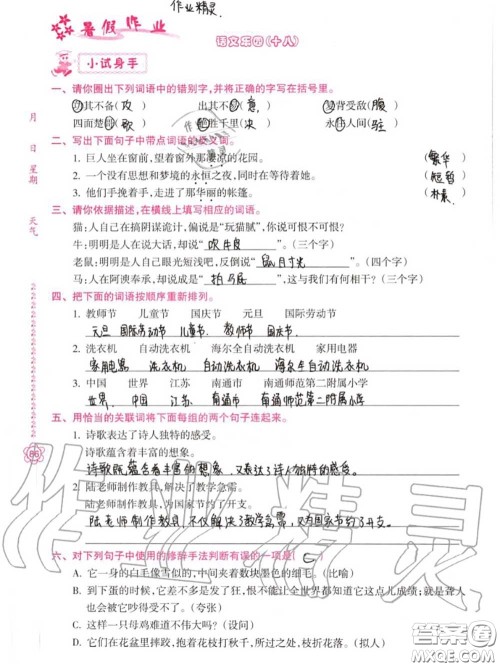 作业精灵
暑假作业
语文在线(十八)
小试身手
一、请你圈出下列词语中的错别字,并将正确的字写在括号里。
其不备(攻) 出其不(意) 背受敌(腹)
四面楚(歌) 胜千里(决) 永人间(驻)
二、写出下面句子中带点词语的反义词。
1. 巨人坐在窗前,望着窗外那凄凉的花园。 (繁华)
2. 一个没有思想和梦境的永恒之夜,同样也在等待着她。 (短暂)
3. 他们手挽着手,走进了那华丽的帐篷。 (朴素)
三、请你依据描述,在横线上填写相应的词语。
猫:人类自己在搞阴谋诡计,偏说是“玩猫腻”,你说可恨不可恨?
牛:明明是人类在说大话,却说“吹牛皮”。(三个字)
老鼠:明明是人类自己眼光短浅吧,反倒说“鼠目寸光”。(四个字)
马:人类在阿谀奉承,却说成是“拍马屁”,这与我们有何相干?(三个字)
四、把下面的词语按顺序重新排列。
1. 教师节 儿童节 国庆节 元旦 国际劳动节
元旦 国际劳动节 儿童节 教师节 国庆节
2. 洗衣机 自动洗衣机 海尔全自动洗衣机 家用电器
家用电器 洗衣机 自动洗衣机 海尔全自动洗衣机
3. 中国 世界 江苏 南通市 南通师范第二附属小学
世界 中国 江苏 南通市 南通师范第二附属小学
五、用恰当的关联词将下面每组的两个句子连起来。
1. 诗歌表达了诗人独特的感受。
诗歌蕴含着丰富的想象。
诗歌既蕴含着丰富的想象,又表达了诗人独特的感受。
2. 陆老师制作教具,解决了教学急需。
陆老师制作教具,为国家节约了开支。
陆老师制作教具,不仅解决了教学急需,又为国家节约了开支。
六、对下列句子中使用的修辞手法判断有误的一项是( C )
A. 它一身的白毛像雪似的,中间夹着数块墨色的细毛,黑白相间。(比喻)
B. 到下蛋的时候,它差不多是发了狂,恨不能让全世界都知道它这点成就;就是聋人也会被它吵得受不了。(夸张)
C. 这样一只母鸡难道不伟大吗?(设问)
D. 它们在花盆里摔跤,抱着花枝打秋千,所过之处,枝折花落。(拟人)
月 日 星期 天气
86
作业精灵
答案圈
MXQE.COM